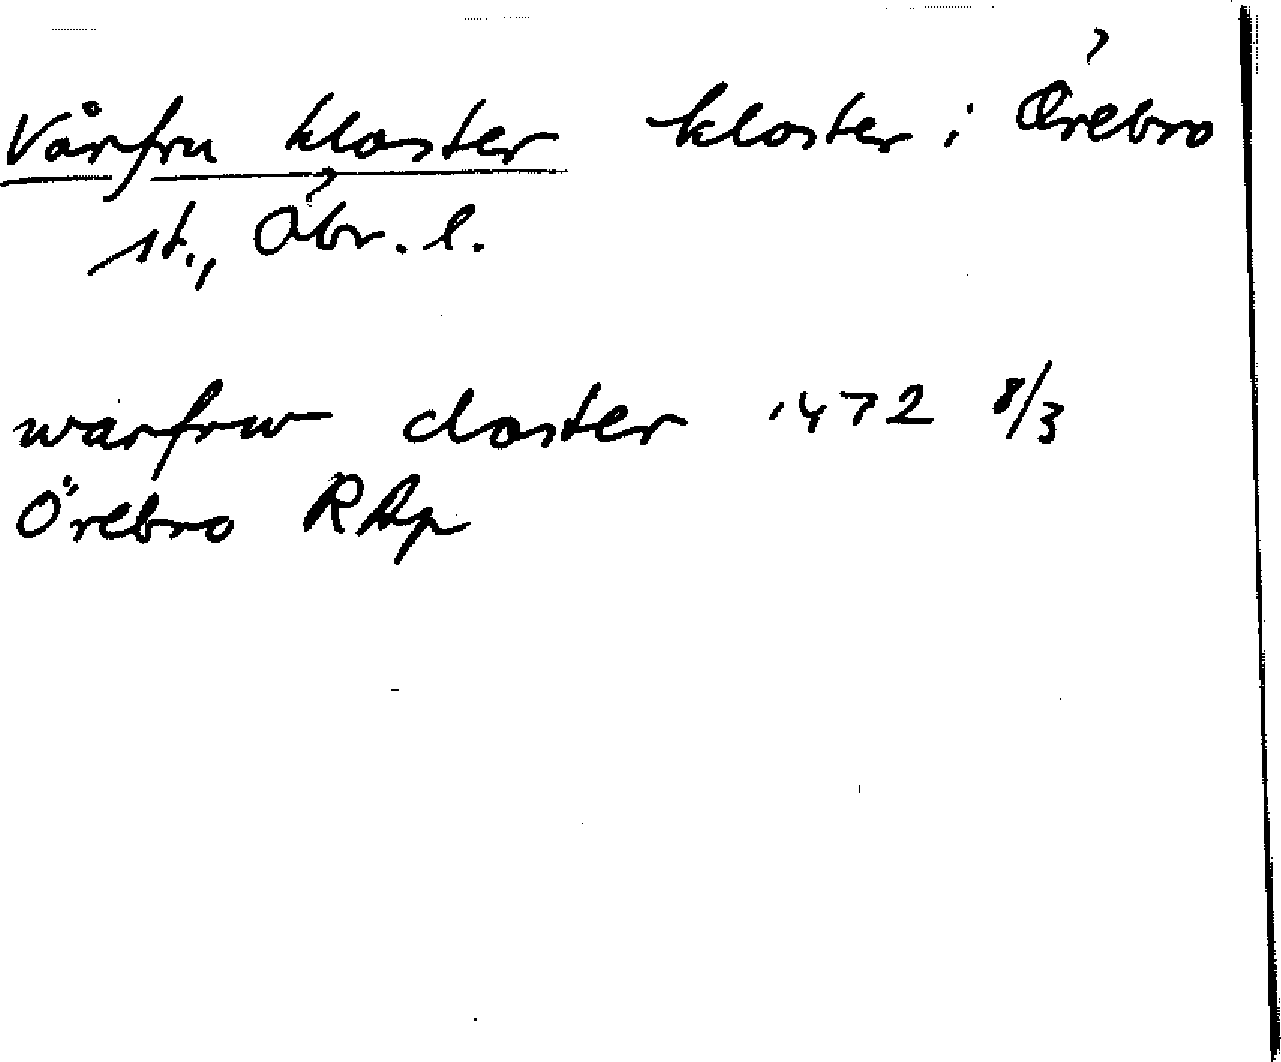 Vårfru kloster kloster i Örebro
st., Öbr. l.
warfrw closter 1472 8/3
Örebro RAp